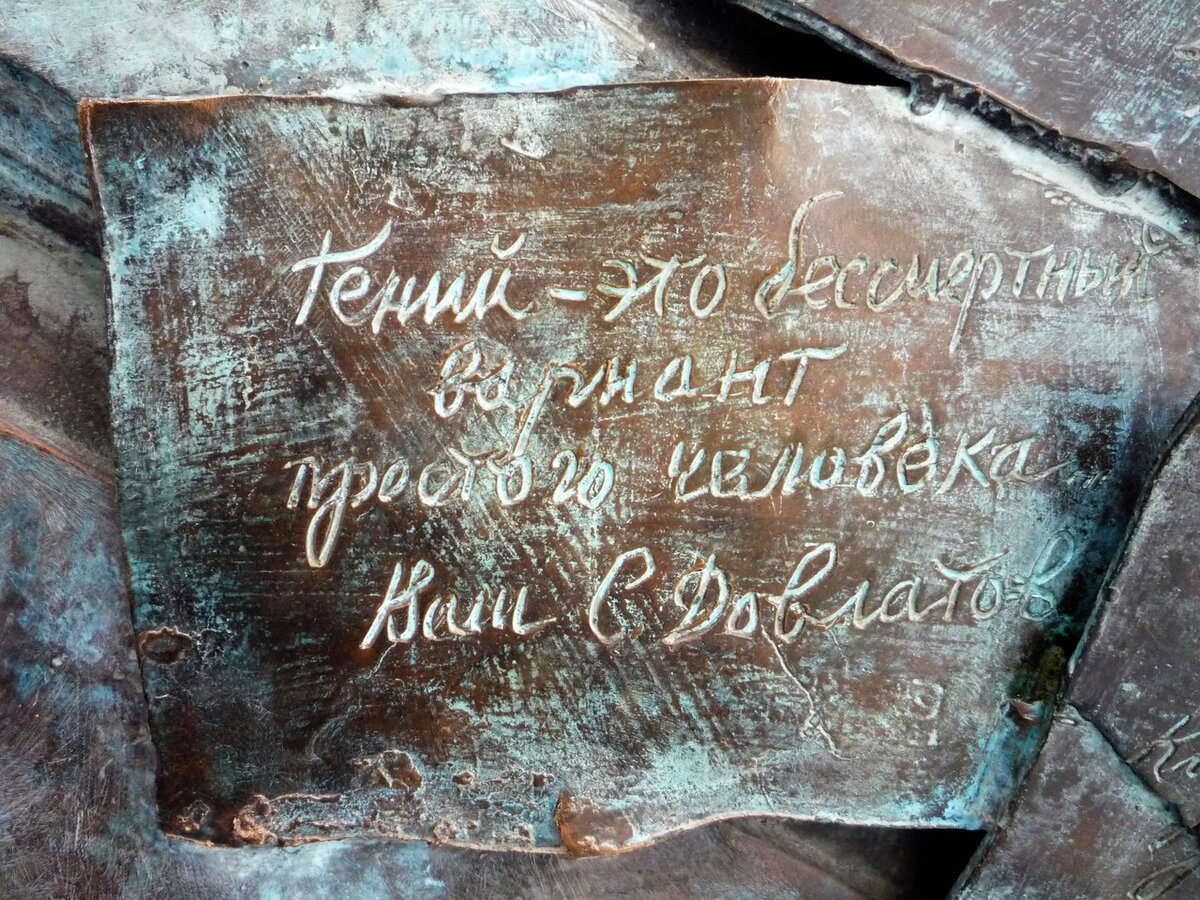 Гений - это бессмертный
вариант
простого человека...
Ваш С Довлатов